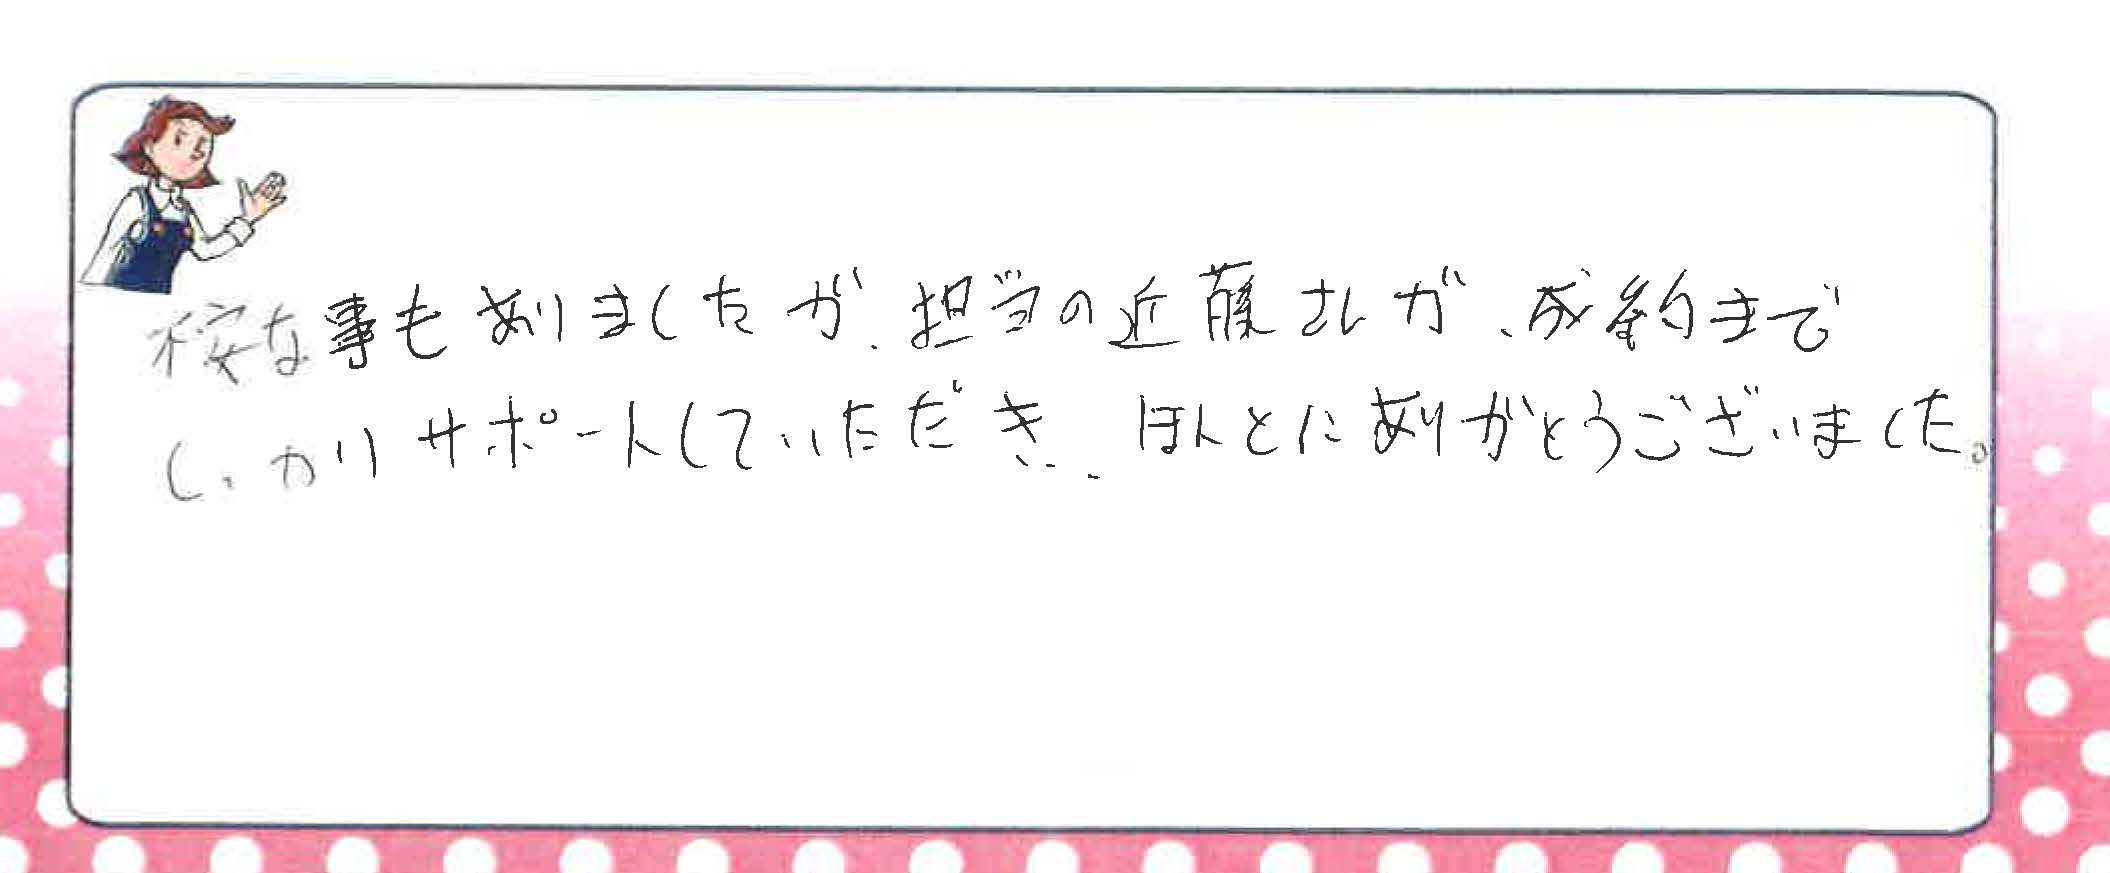 不安な事もありましたが、担当の近藤さんが、成約まで
しっかりサポートしていただき、ほんとにありがとうございました。